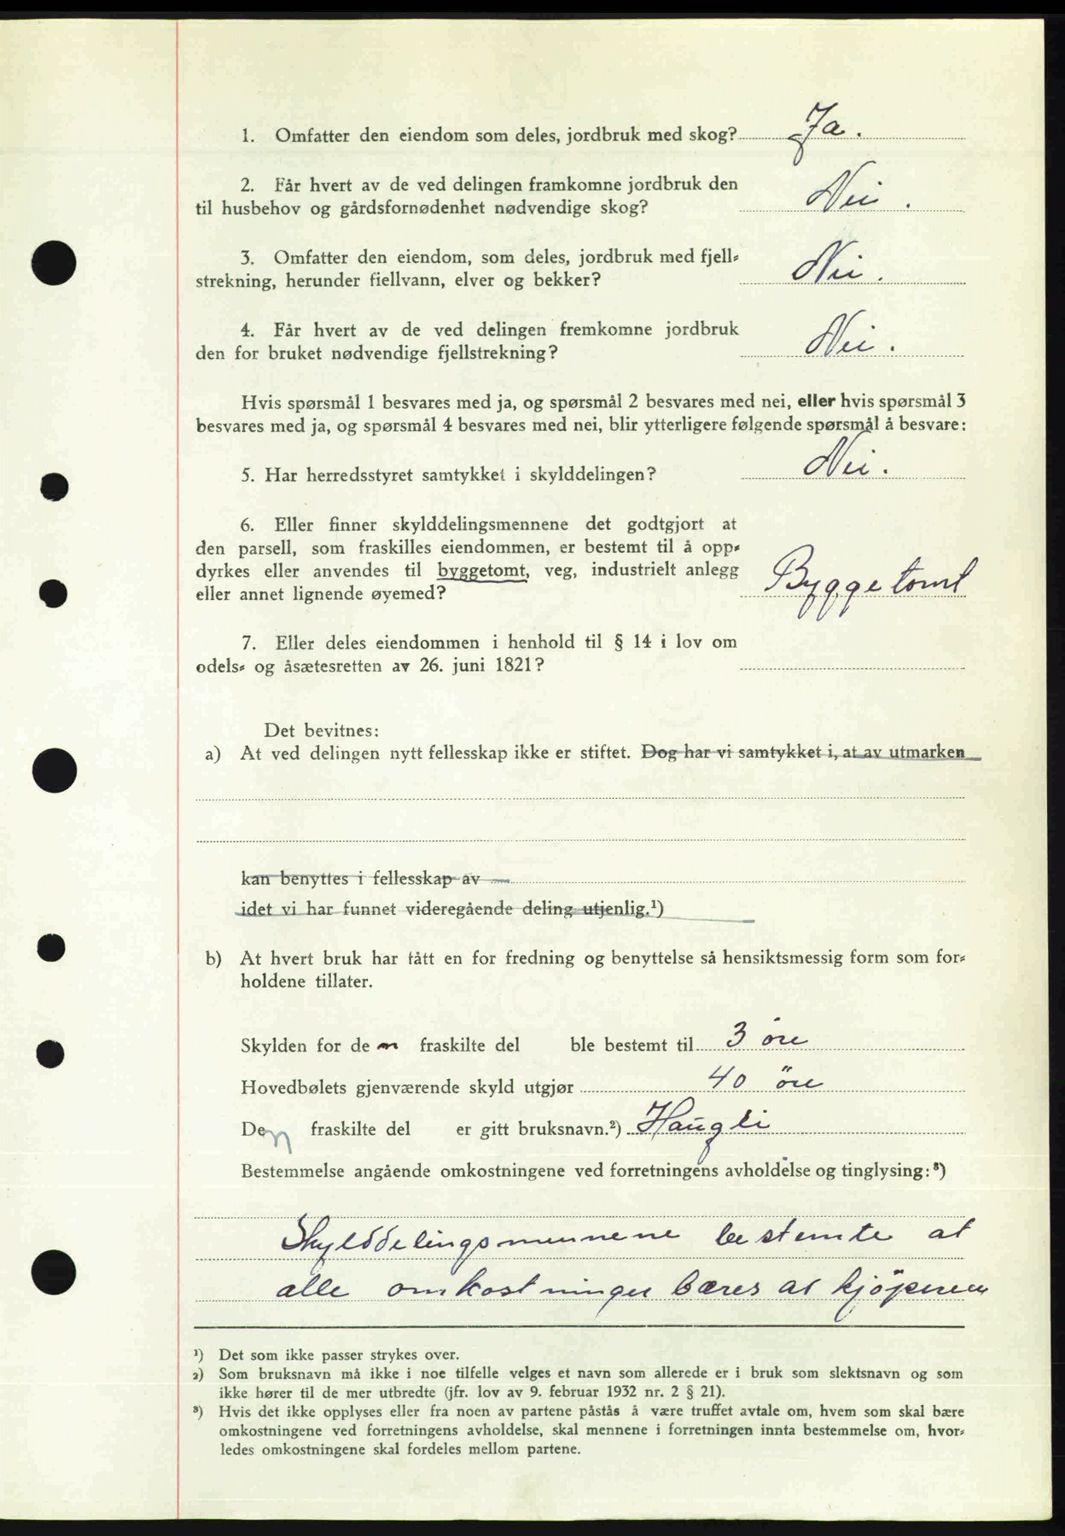 1. Omfatter den eiendom som deles, jordbruk med skog? Ja.
2. Får hvert av de ved delingen framkomne jordbruk den
til husbehov og gårdsfornødenhet nødvendige skog? Nei.
3. Omfatter den eiendom, som deles, jordbruk med fjell-
strekning, herunder fiellvann, elver og bekker? Nei.
4. Får hvert av de ved delingen fremkomne jordbruk
den for bruket nødvendige fjellstrekning? Nei.
Hvis spørsmål 1 besvares med ja, og spørsmål 2 besvares med nei, eller hvis spørsmål 3
besvares med ja, og spørsmål 4 besvares med nei, blir ytterligere følgende spørsmål å besvare:
5. Har herredsstyret samtykket i skylddelingen? Nei.
6. Eller finner skylddelingsmennene det godtgjort at
den parsell, som fraskilles eiendommen, er bestemt til å opp-
dyrkes eller anvendes til byggetomt, veg, industrielt anlegg
eller annet lignende øyemed? Byggetomt
7. Eller deles eiendommen i henhold til § 14 i lov om
odels- og åsætesretten av 26. juni 1821?
Det bevitnes:
a) At ved delingen nytt fellesskap ikke er stiftet. Dog har vi samtykket i, at av utmarken
kan benyttes i fellesskap av
idet vi har funnet videregående deling utjenlig.¹)
b) At hvert bruk har fått en for fredning og benyttelse så hensiktsmessig form som for-
holdene tillater.
Skylden for den fraskilte del ble bestemt til 3 öre
Hovedbølets gjenværende skyld utgjør 40 öre
Den fraskilte del er gitt bruksnavn.²) Haugli
Bestemmelse angående omkostningene ved forretningens avholdelse og tinglysing:³)
Skylddelingsmennene bestemte at
alle omkostninger bæres av kjöperen
¹) Det som ikke passer strykes over.
²) Som bruksnavn må ikke i noe tilfelle velges et navn som allerede er i bruk som slektsnavn og som
ikke hører til de mer utbredte (jfr. lov av 9. februar 1932 nr. 2 § 21).
³) Hvis det ikke opplyses eller fra noen av partene påstås å være truffet avtale om, hvem som skal bære
omkostningene ved forretningens avholdelse, skal mennene i forretningen innta bestemmelse om, hvor-
ledes omkostningene skal fordeles mellom partene.